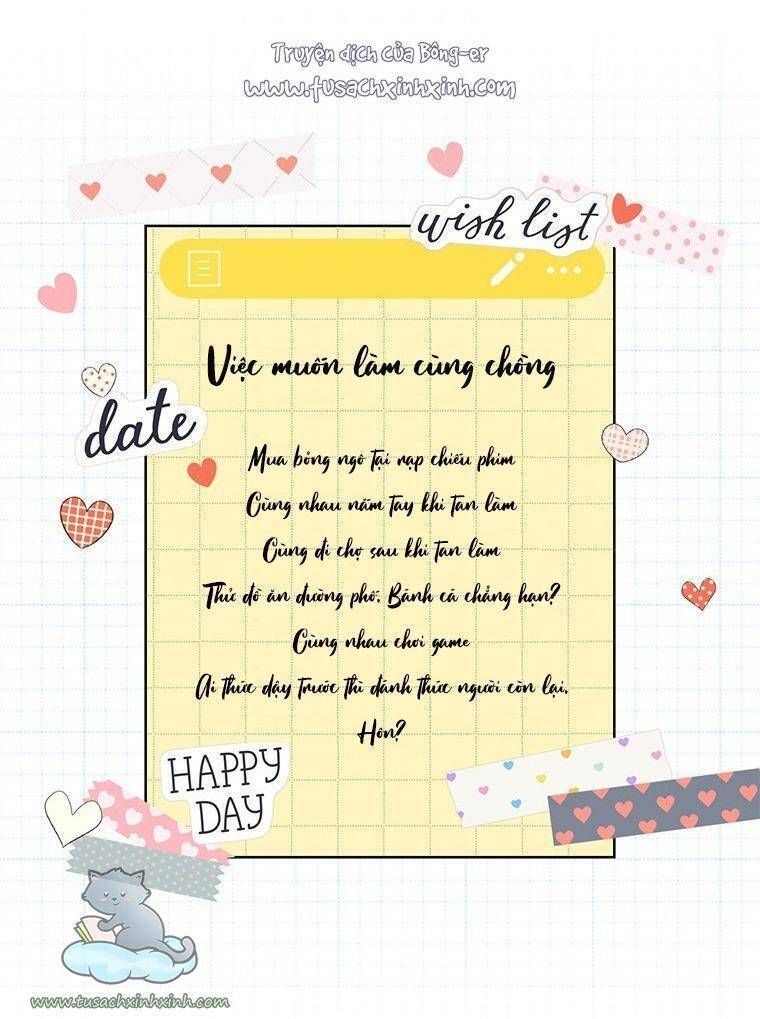 Truyện dịch của Bông-er
www.tusachxinhxinh.com
wish list
Việc muốn làm cùng chồng
date
Mua bỏng ngô tại rạp chiếu phim
Cùng nhau nắm tay khi tan làm
Cùng đi chợ sau khi tan làm
Thử đồ ăn đường phố. Bánh cá chẳng hạn?
Cùng nhau chơi game
Ai thức dậy trước thì đánh thức người còn lại.
Hôn?
HAPPY
DAY
www.tusachxinhxinh.com